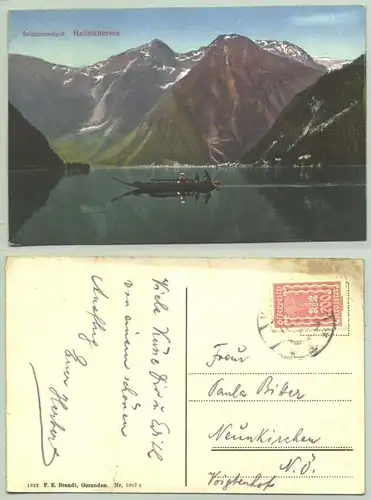 Salzkammergut Hallstättersee
Viele Küsse Dir u.
von einem schönen
Ausflug
Euer Herbert
Frau
Paula Biber
Neunkirchen
N.Ö.
Voigtenhof
1922 F. E. Brandt, Gmunden. Nr. 1907 c